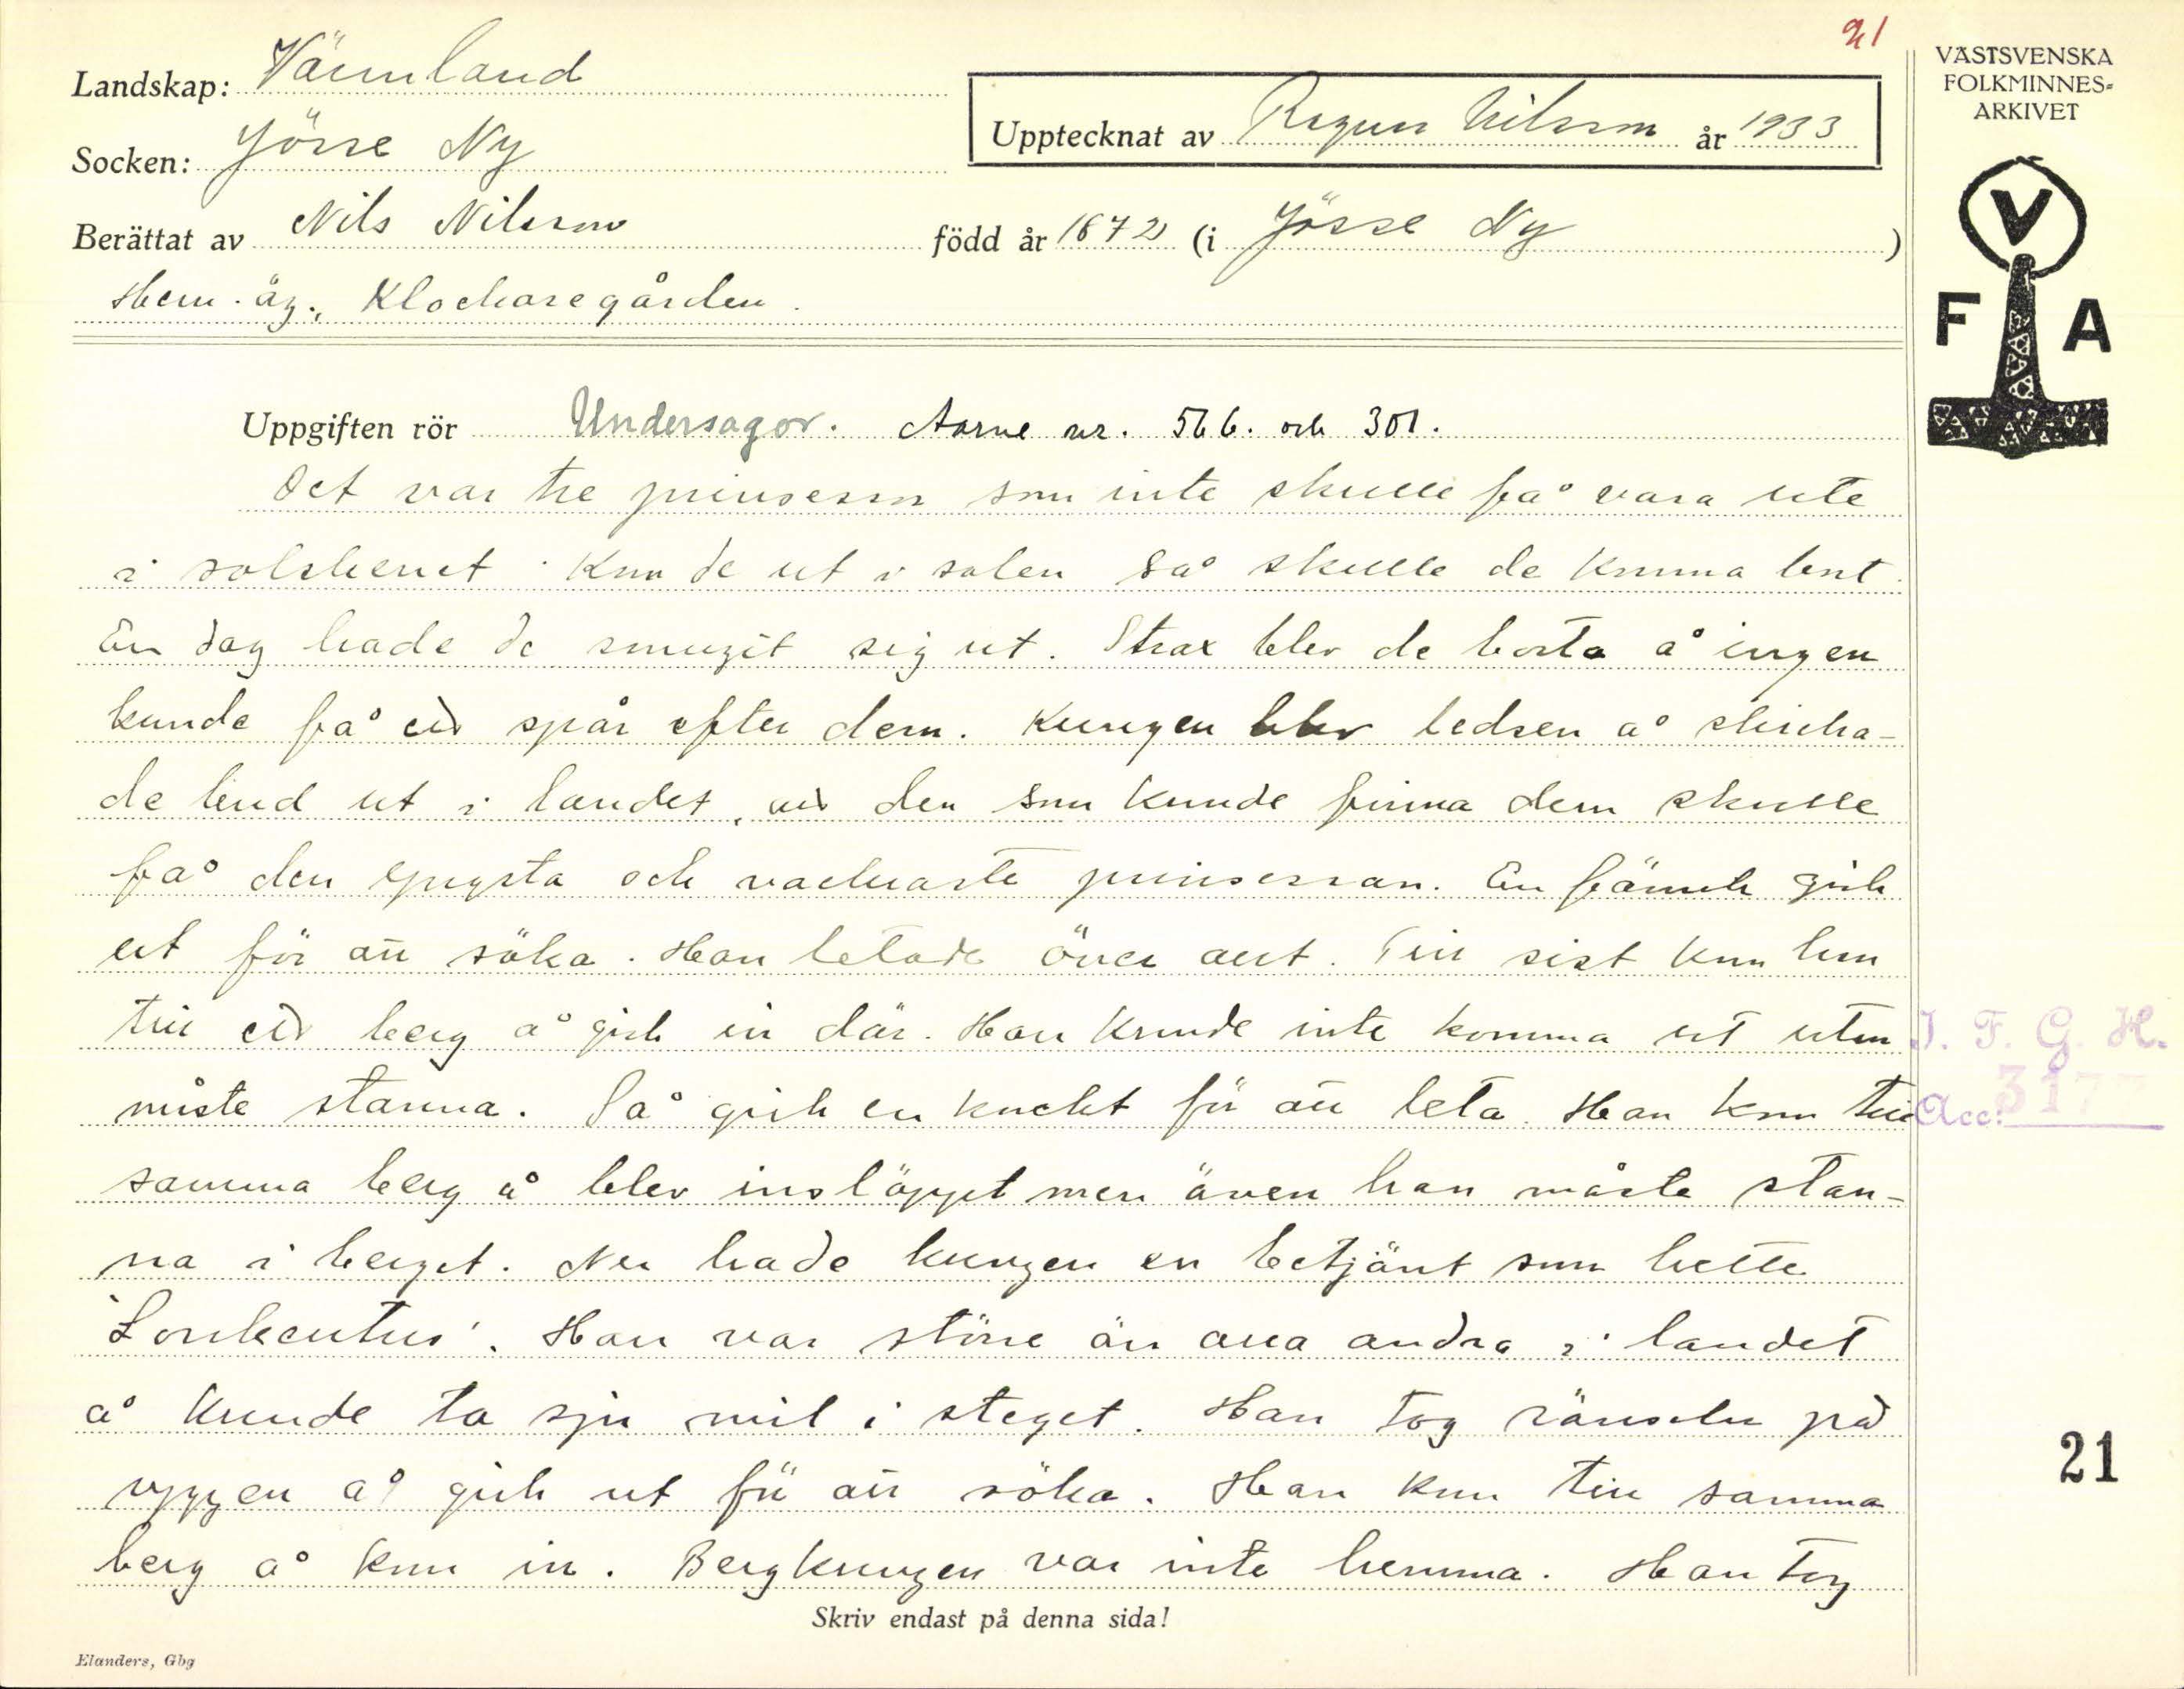 21
Landskap: Värmland
Socken: Jösse Ny
Upptecknat av Ragnar Nilsson år 1933
Berättat av Nils Nilsson född år 1872 (i Jösse Ny)
Hem. äg., Klockaregården.
VÄSTSVENSKA
FOLKMINNES-
ARKIVET
V
F A
Uppgiften rör Undersagor. Aarne nr. 566. och 301.
Det var tre prinsessor som inte skulle få vara ute
i solskenet. Kom de ut i solen så skulle de komma bort.
En dag hade de smugit sig ut. Strax blev de borta å ingen
kunde få ett spår efter dem. Kungen blev ledsen å skicka-
de bud ut i landet, att den som kunde finna dem skulle
få den yngsta och vackraste prinsessan. En fänrik gick
ut för att söka. Han letade över allt. Till sist kom han
till ett berg å gick in där. Han kunde inte komma ut utan
måste stanna. Så gick en knekt för att leta. Han kom till
samma berg å blev insläppt men även han måste stan-
na i berget. Nu hade kungen en betjänt som hette
'Lonkentus'. Han var större än alla andra i landet
å kunde ta sju mil i steget. Han tog ränseln på
ryggen å gick ut för att söka. Han kom till samma
berg å kom in. Bergkungen var inte hemma. Han tog
I. F. G. H.
Acc: 3177
21
Skriv endast på denna sida!
Elanders, Gbg